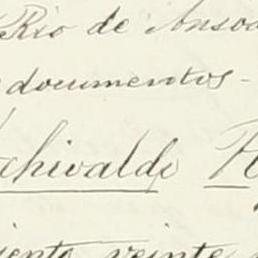 Rio de Ansoa
documentos -
rchivaldo
iento veinte